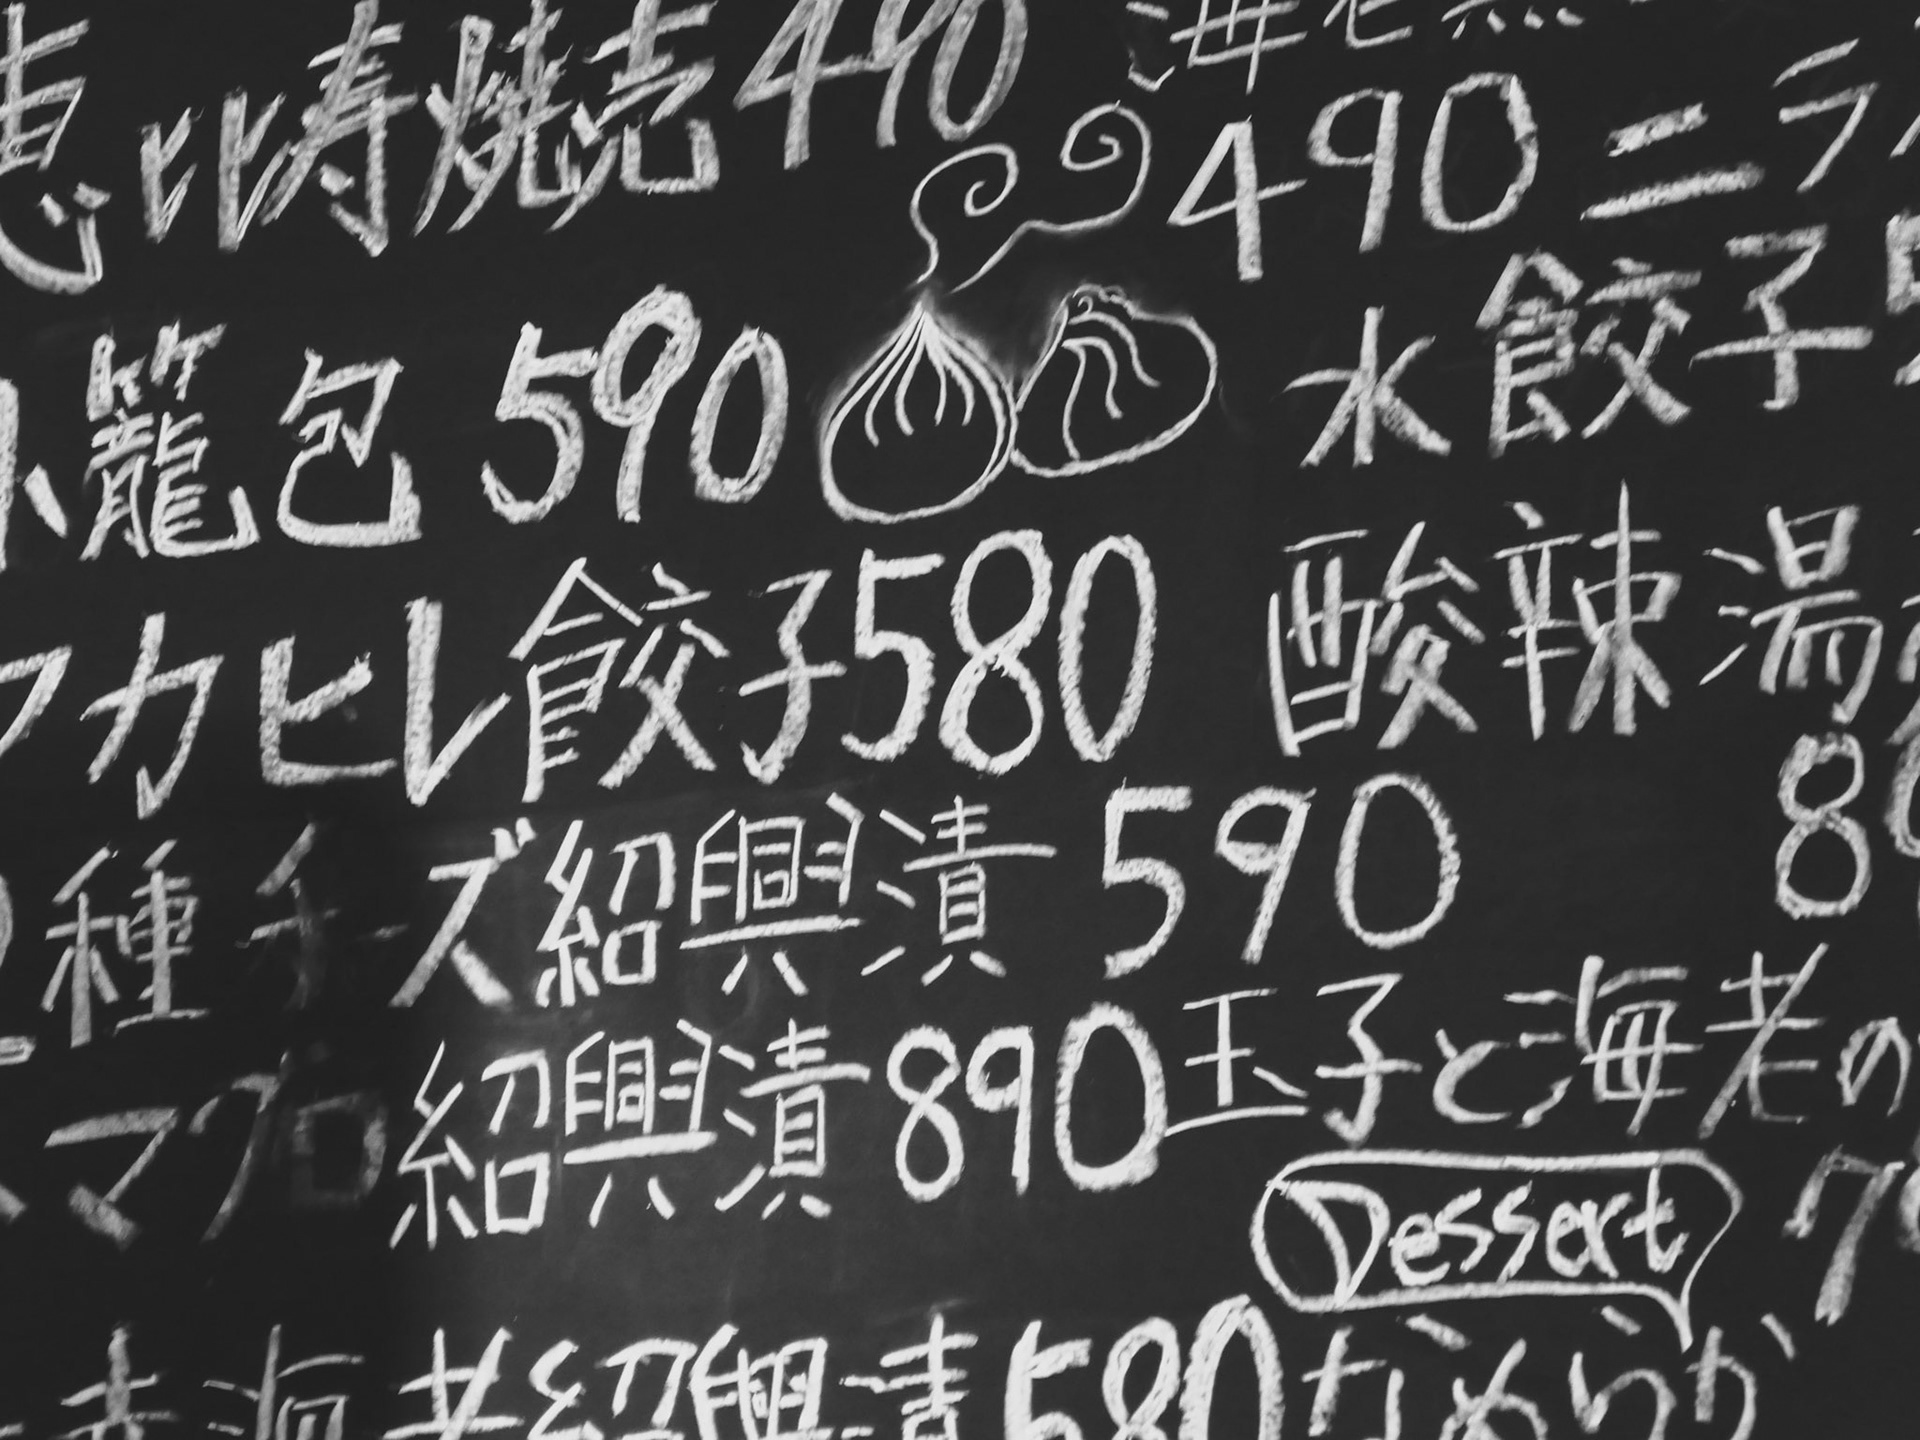 恵比寿焼売490
小籠包 590
フカヒレ餃子580
2種チーズ紹興漬 590
マグロ紹興漬890
赤海老紹興漬580
海老蒸
490
ニラ
水餃子
酸辣湯
89
玉子と海老の
7
Dessert
なめらか